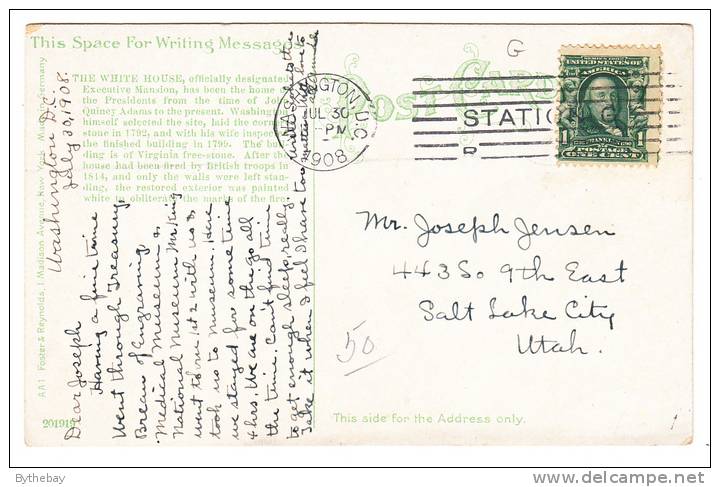 This Space For Writing Messages
POST CARD
THE WHITE HOUSE, officially designated
Executive Mansion, has been the home of
the Presidents from the time of John
Quincy Adams to the present. Washington
himself selected the site, laid the corner
stone in 1792, and with his wife inspected
the finished building in 1799. The buil-
ding is of Virginia free-stone. After the
house had been fired by British troops in
1814, and only the walls were left stan-
ding, the restored exterior was painted
white to obliterate the marks of the fire.
AA1 Foster & Reynolds, 1 Madison Avenue, New York. Made in Germany
201919
Washington D.C.
July 30, 1908.
Dear Joseph
Having a fine time
Went through Treasury,
Breau of Engraving,
Medical Museum &
National Museum. Mr King
went to our 1st 2 with us &
took us to museum. Sure
we stayed for some time
4 hrs. We are on the go all
the time. Can't find time
to get enough sleep, really
take it when I feel I have to
WASHINGTON, D.C.
JUL 30
-PM
1908
STATION G
G
UNITED STATES OF
AMERICA
FRANKLIN
POSTAGE
1 ONE CENT 1
Mr. Joseph Jensen
443 So. 9th East
Salt Lake City
Utah.
50
This side for the Address only.
Bythebay
delcampe.net